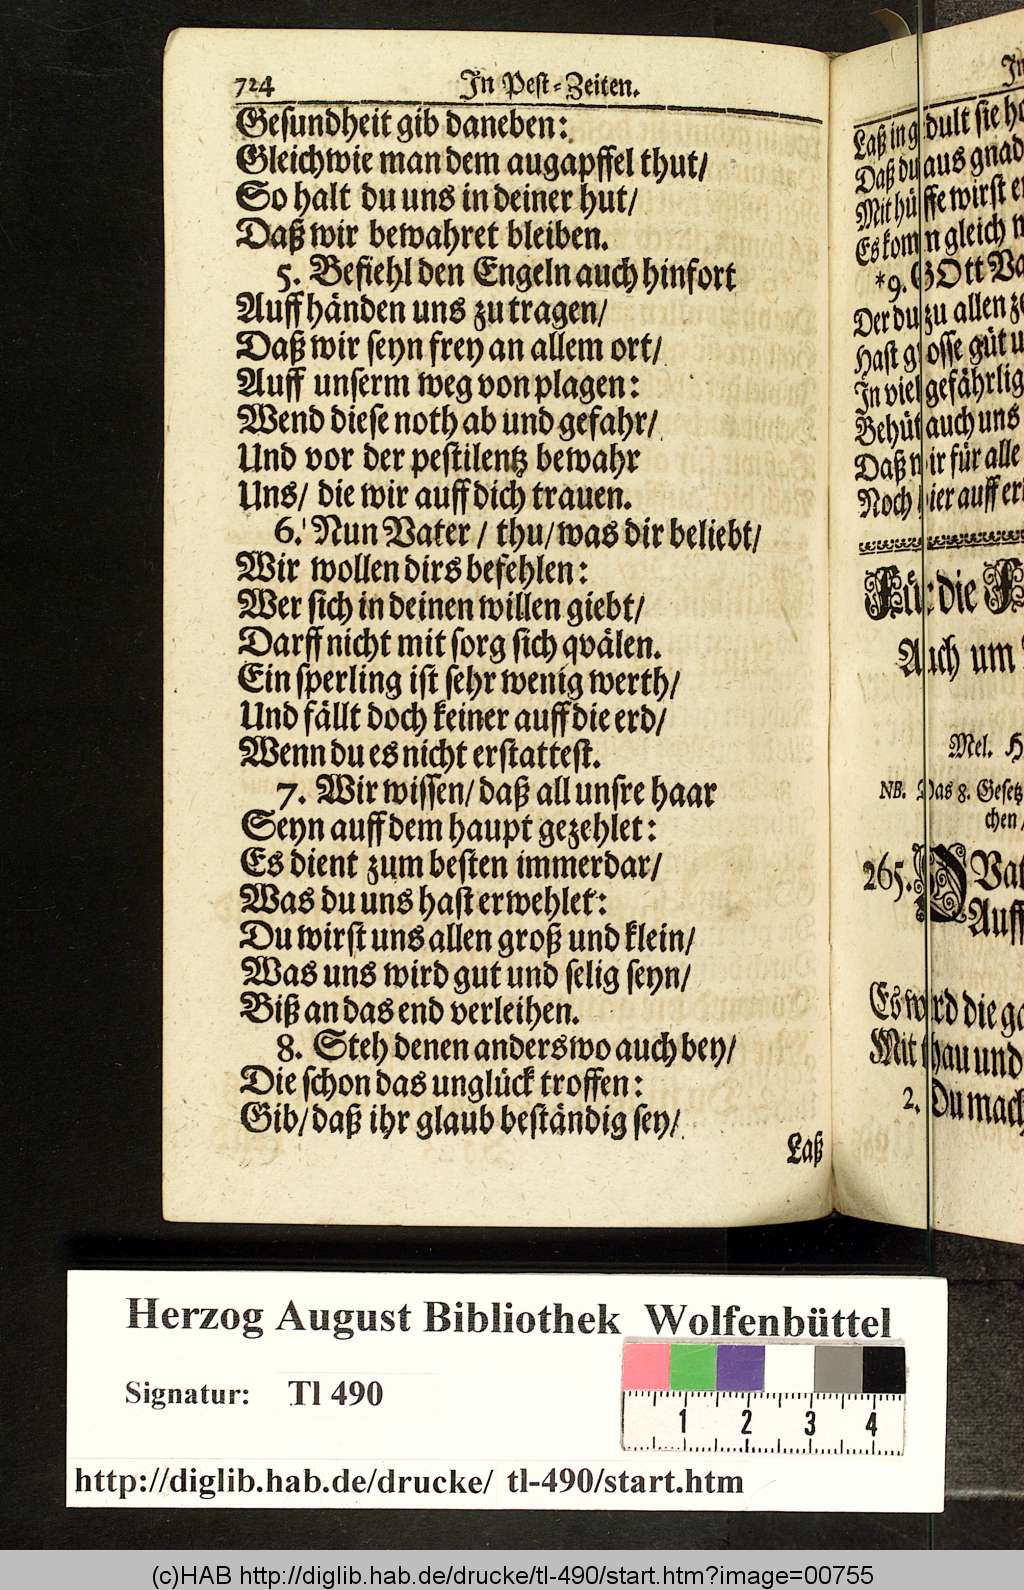 724 In Pest-Zeiten.
Gesundheit gib daneben:
Gleichwie man dem augapffel thut/
So halt du uns in deiner hut/
Daß wir bewahret bleiben.
5. Befiehl den Engeln auch hinfort
Auff händen uns zu tragen/
Daß wir seyn frey an allem ort/
Auff unserm weg von plagen:
Wend diese noth ab und gefahr/
Und vor der pestilentz bewahr
Uns/ die wir auff dich trauen.
6. Nun Vater / thu/ was dir beliebt/
Wir wollen dirs befehlen:
Wer sich in deinen willen giebt/
Darff nicht mit sorg sich qvälen.
Ein sperling ist sehr wenig werth/
Und fällt doch keiner auff die erd/
Wenn du es nicht erstattest.
7. Wir wissen/ daß all unsre haar
Seyn auff dem haupt gezehlet:
Es dient zum besten immerdar/
Was du uns hast erwehlet:
Du wirst uns allen groß und klein/
Was uns wird gut und selig seyn/
Biß an das end verleihen.
8. Steh denen anderswo auch bey/
Die schon das unglück troffen:
Gib/ daß ihr glaub beständig sey/
Laß
Laß in gedult sie
Daß du aus gnad
Mit hülffe wirst
Es komm gleich
*9. GOtt
Der du zu allen
Hast grosse güt
In viel gefährlig
Behüt auch uns
Daß wir für alle
Noch hier auff
Für die
Auch um
Mel.
NB. Das 8. Gesetz
chen/
265. O
Auff
Es wird die
Mit thau und
2. Du mach
Herzog August Bibliothek Wolfenbüttel
Signatur: Tl 490
1 2 3 4
http://diglib.hab.de/drucke/ tl-490/start.htm
(c)HAB http://diglib.hab.de/drucke/tl-490/start.htm?image=00755